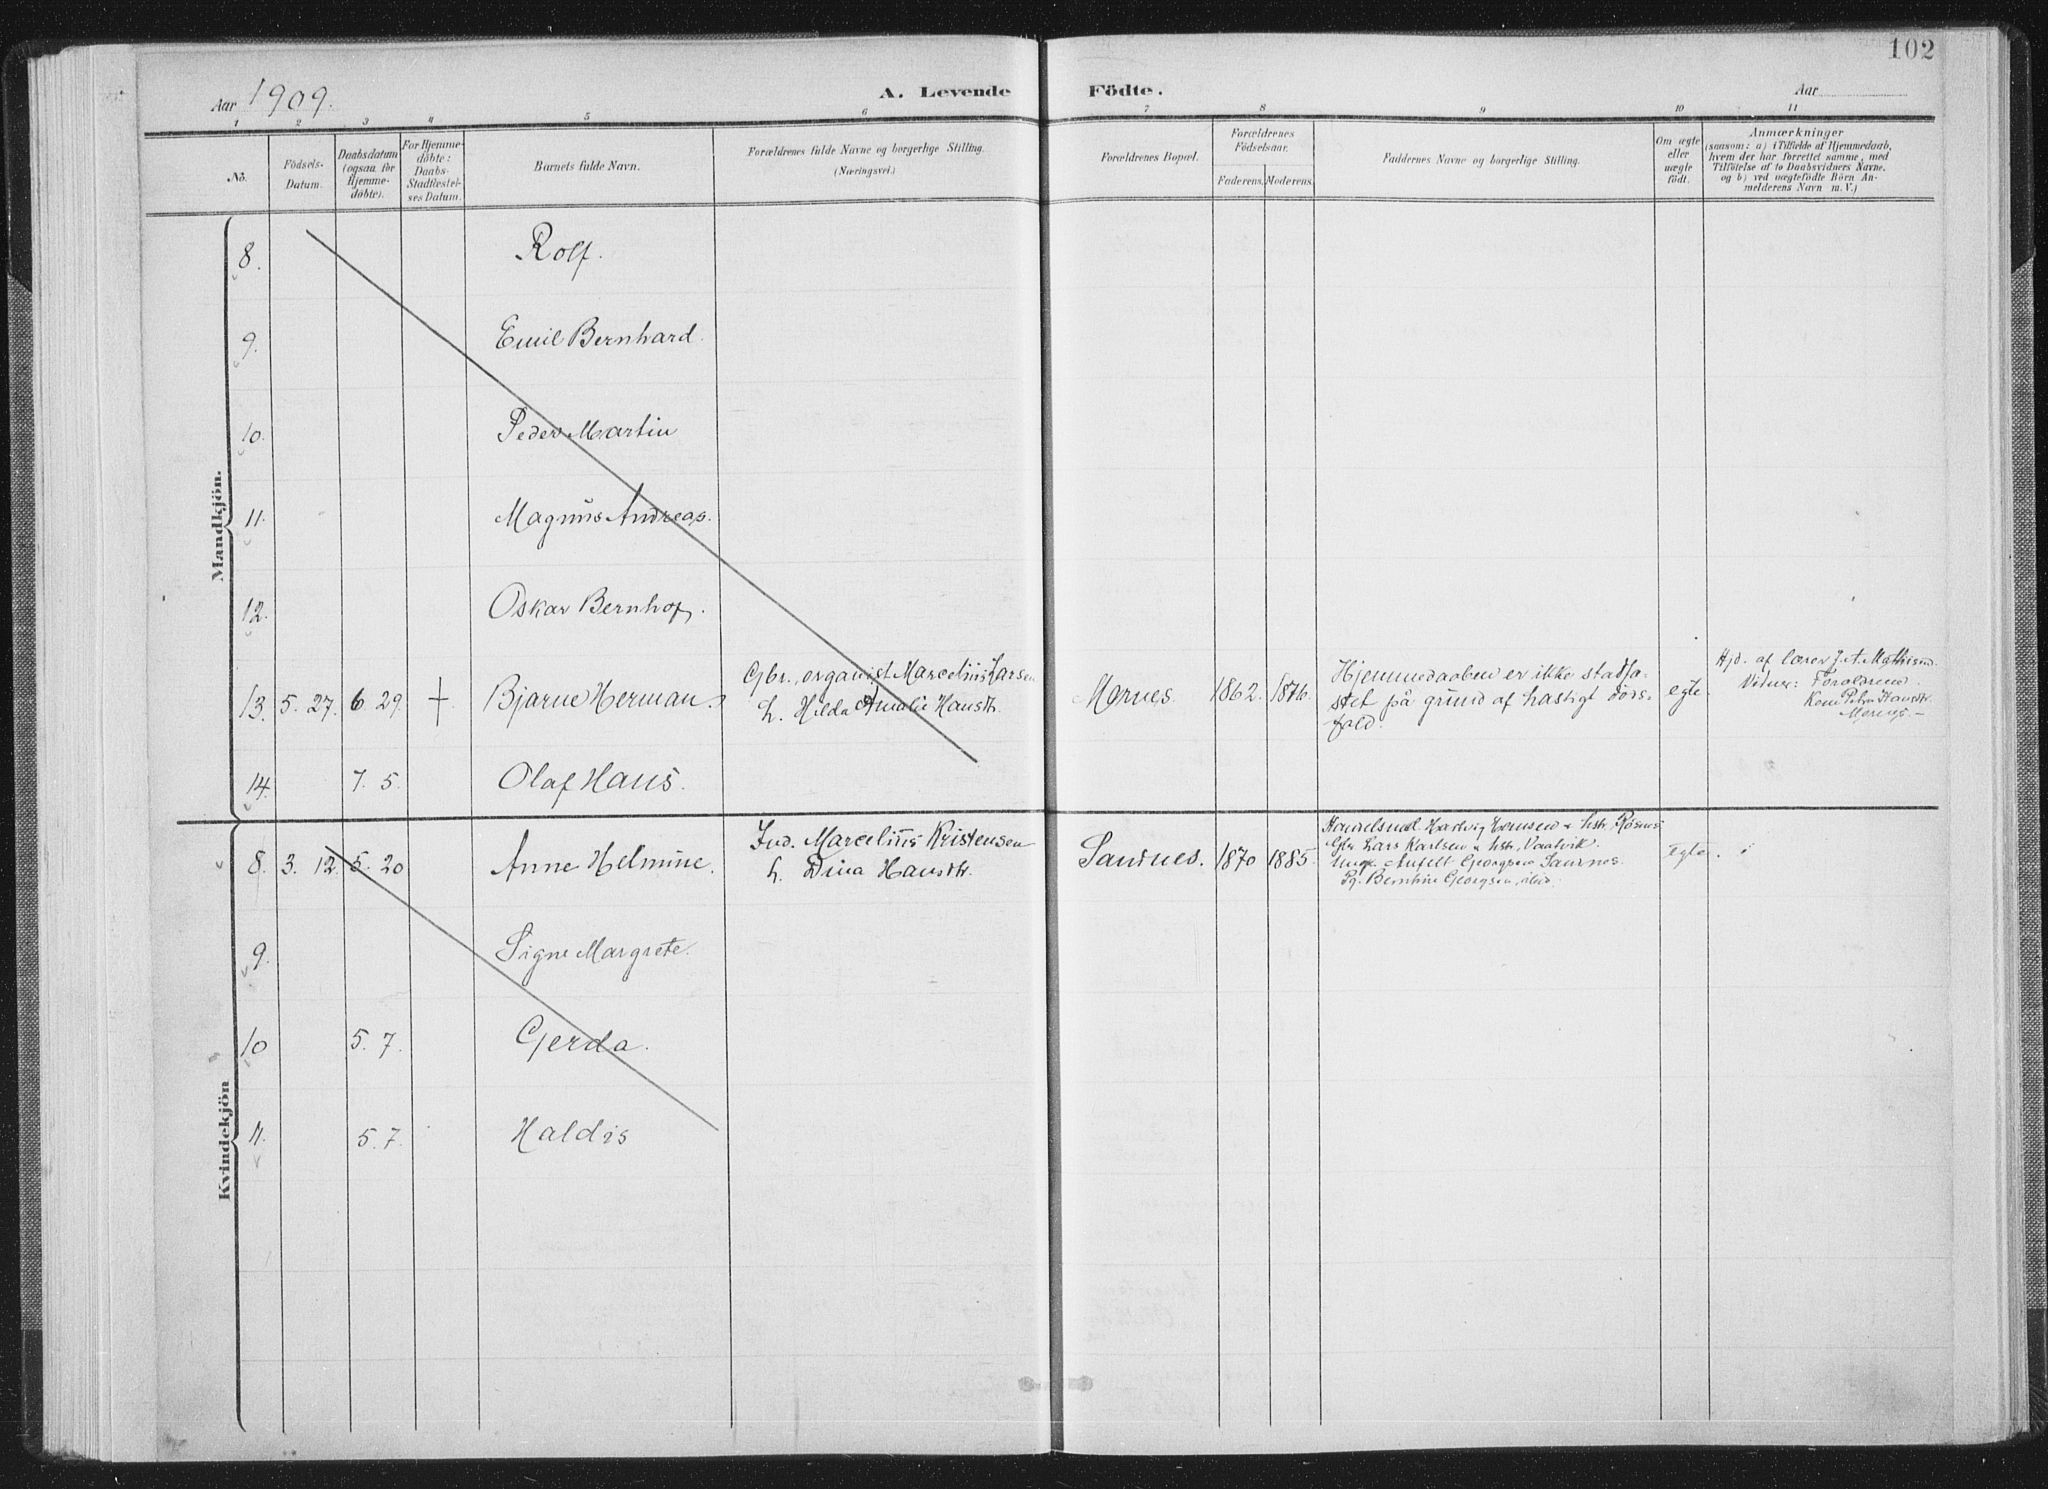 102
Aar 1909.
A. Levende Födte.
Aar
1 2 3 4 5 6 7 8 9 10 11
No.
Födsels-
Datum.
Daabsdatum
(ogsaa for
Hjemme-
döbte).
For Hjemme-
döbte:
Daabs-
Stadfæstel-
ses Datum.
Barnets fulde Navn.
Forældrenes fulde Navne og borgerlige Stilling.
(Næringsvei.)
Forældrenes Bopæl.
Forældrenes
Födselsaar.
Faderens. Moderens.
Faddernes Navne og borgerlige Stilling.
Om ægte
eller
uægte
født.
Anmærkninger
(saasom: a) i Tilfælde af Hjemmedaab,
hvem der har forrettet samme, med
Tilföielse af to Daabsvidners Navne.
og b) ved uægtefödte Börn An-
melderens Navn m. V.)
Mandkjön.
8. Rolf.
9. Emil Bernhard.
10. Peder Martin
11. Magnus Andreas.
12. Oskar Bernhof.
13. 5. 27. 6. 29. + Bjarne Herman.
Gbr., organist Marcelius Larsen
h. Hilda Amalie Hansdtr.
Mornes. 1862. 1876.
Hjemmedaaben er ikke stadfæ-
stet på grund af hastigt døds-
fald.
egte
Hjd. af lærer J. A. Mathisen.
Vidner: Forældrene.
Kone Petra Hansdtr.
Mornes.
14. 7. 5. Olaf Hans.
Kvindekjön
8. 3. 12. 5. 20 Anne Helmine.
Ind. Marcelius Kristensen
h. Dina Hansdtr.
Sandnes. 1870 1885.
Handelsmd. Hartvig Hansen & hstr, Røsnes
Gbr Lars Karlsen & hstr, Vaatvik.
Ungk. Anfelt Georgsen Sandnes.
Pg. Bernhine Georgsen, ibid.
Egte.
9. Signe Margrete.
10 5. 7. Gjerda.
11. 5. 7. Haldis